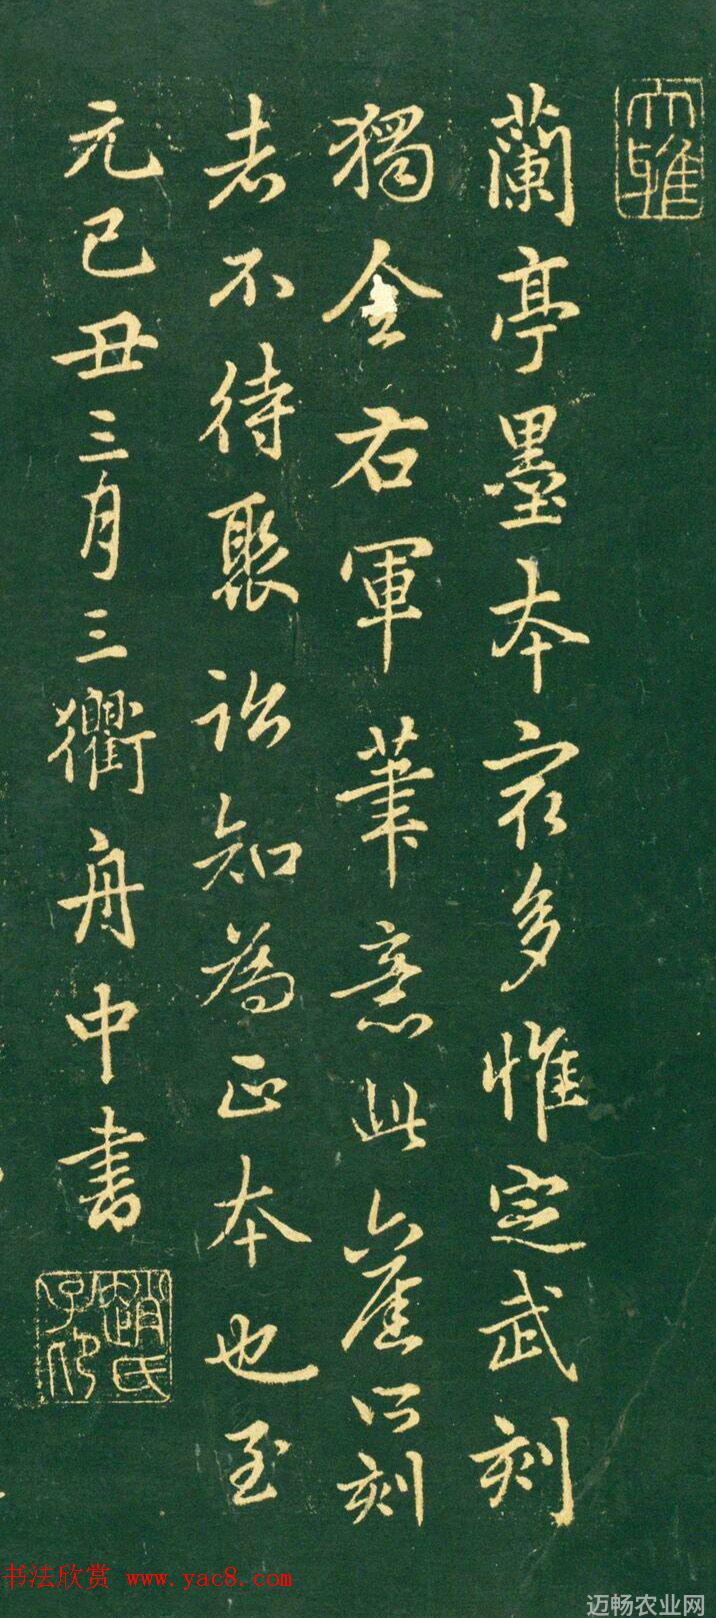 大雅
蘭亭墨本冣多惟定武刻
獨全右軍筆意此舊所刻
者不待聚訟知為正本也至
元己丑三月三衢舟中書
趙氏子昂
书法欣赏 www.yac8.com
迈畅农业网